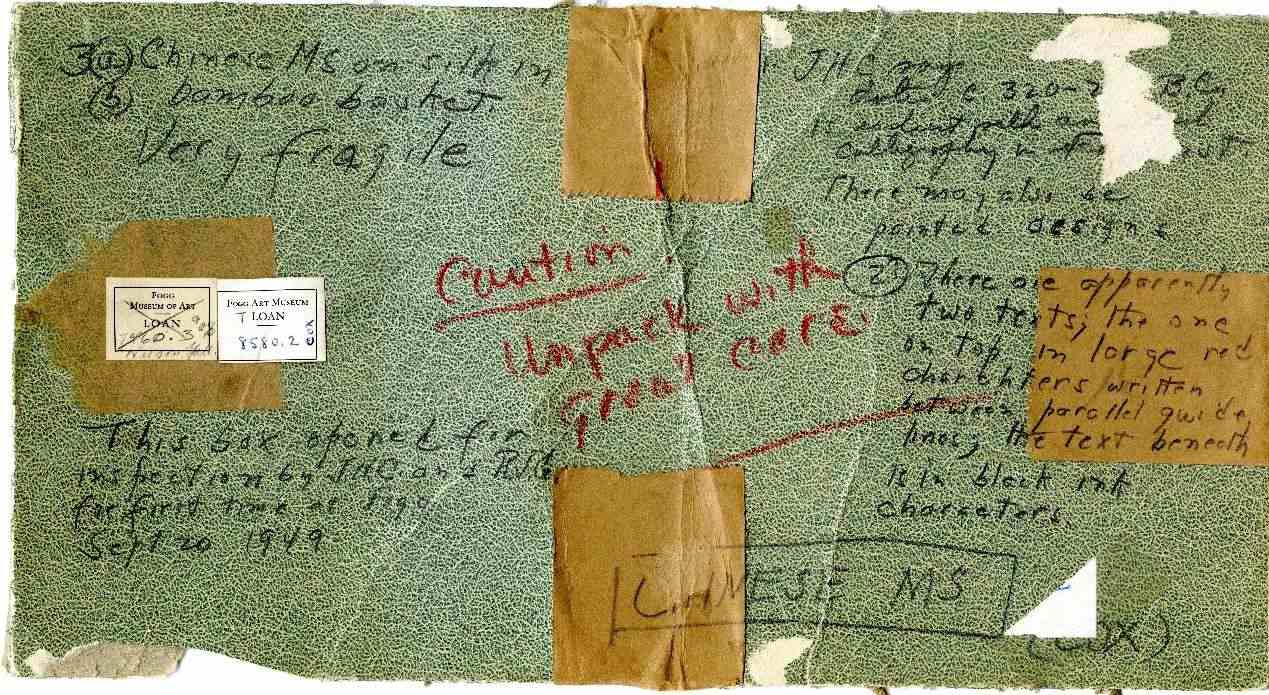 3(a) Chinese MS on silk in
(b) bamboo basket
Very fragile
FOGG
MUSEUM OF ART
LOAN
FOGG ART MUSEUM
T LOAN
8580.2
COX
This box opened for
inspection by JHC and
for first time at Fogg
Sept 20 1949
Caution!
Unpack with
great care.
JHC says
date c 320- B.C.
calligraphy in
There may also be
painted designs
(2) There are apparently
two texts; the one
on top in large red
charachters written
between parallel guide
lines; the text beneath
is in black ink
characters.
CHINESE MS
(COX)